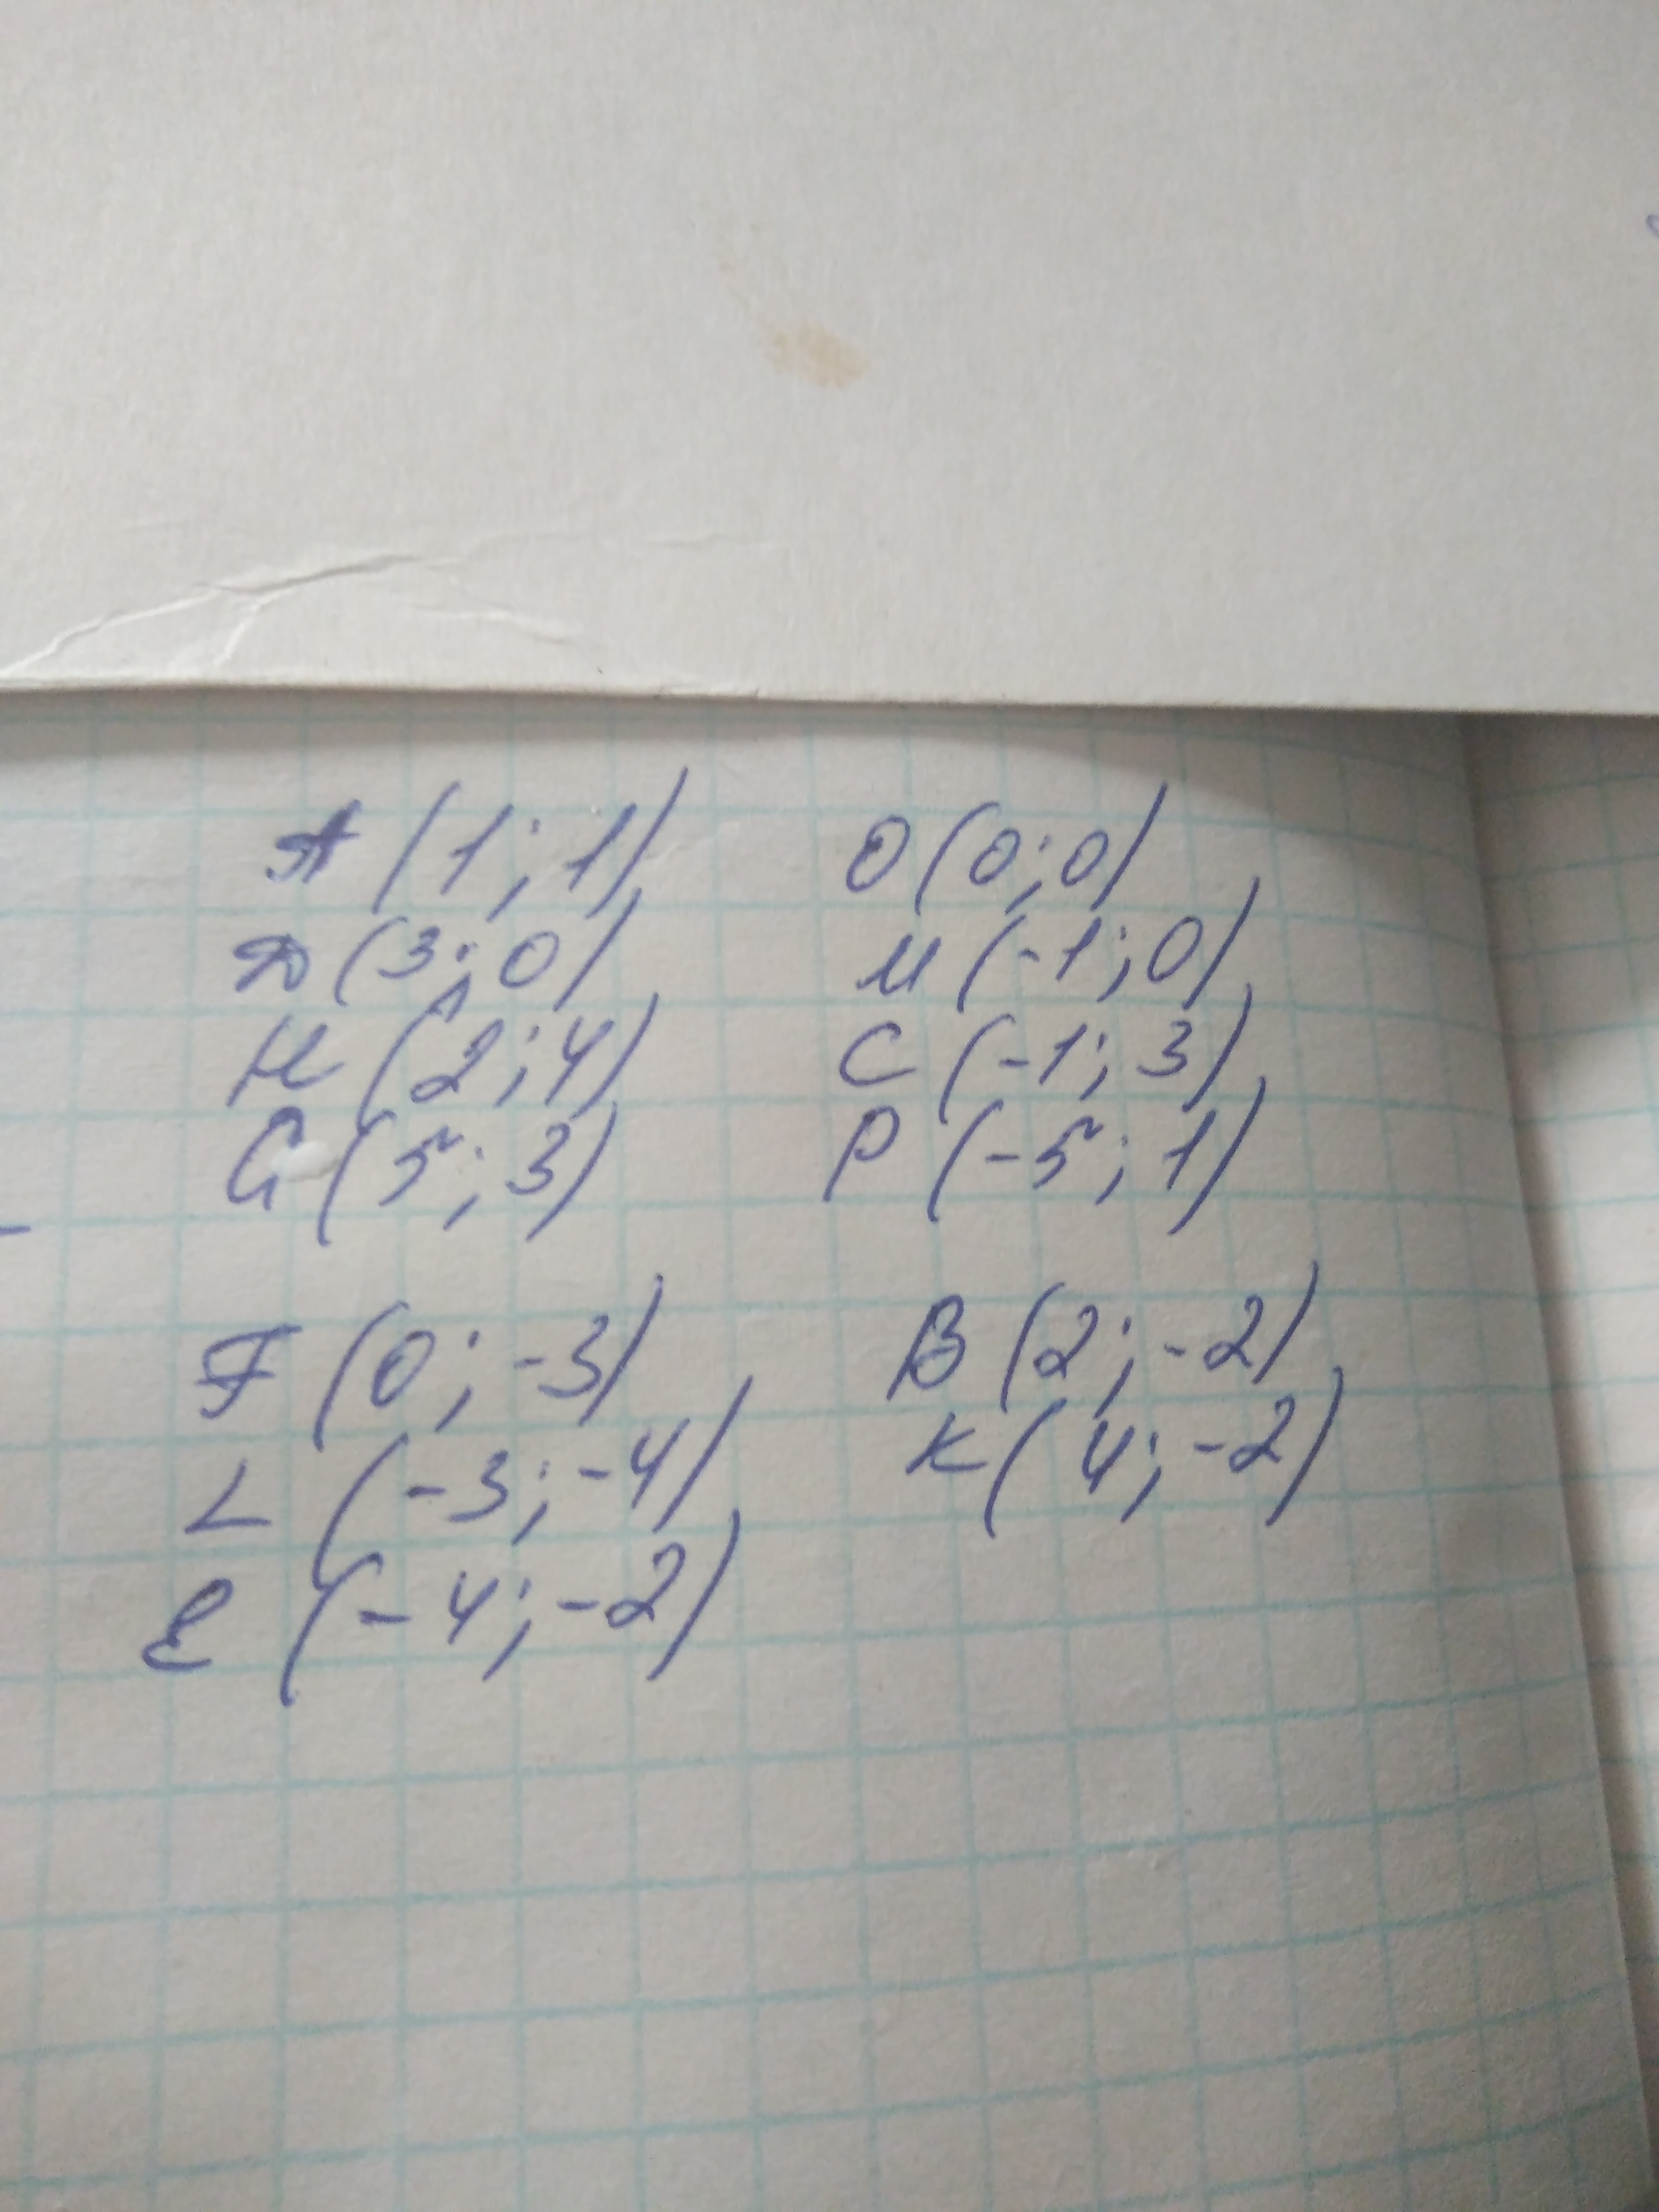 A (1; 1) O (0; 0)
D (3; 0) M (-1; 0)
H (2; 4) C (-1; 3)
G (5; 3) P (-5; 1)
F (0; -3) B (2; -2)
L (-3; -4) K (4; -2)
E (-4; -2)